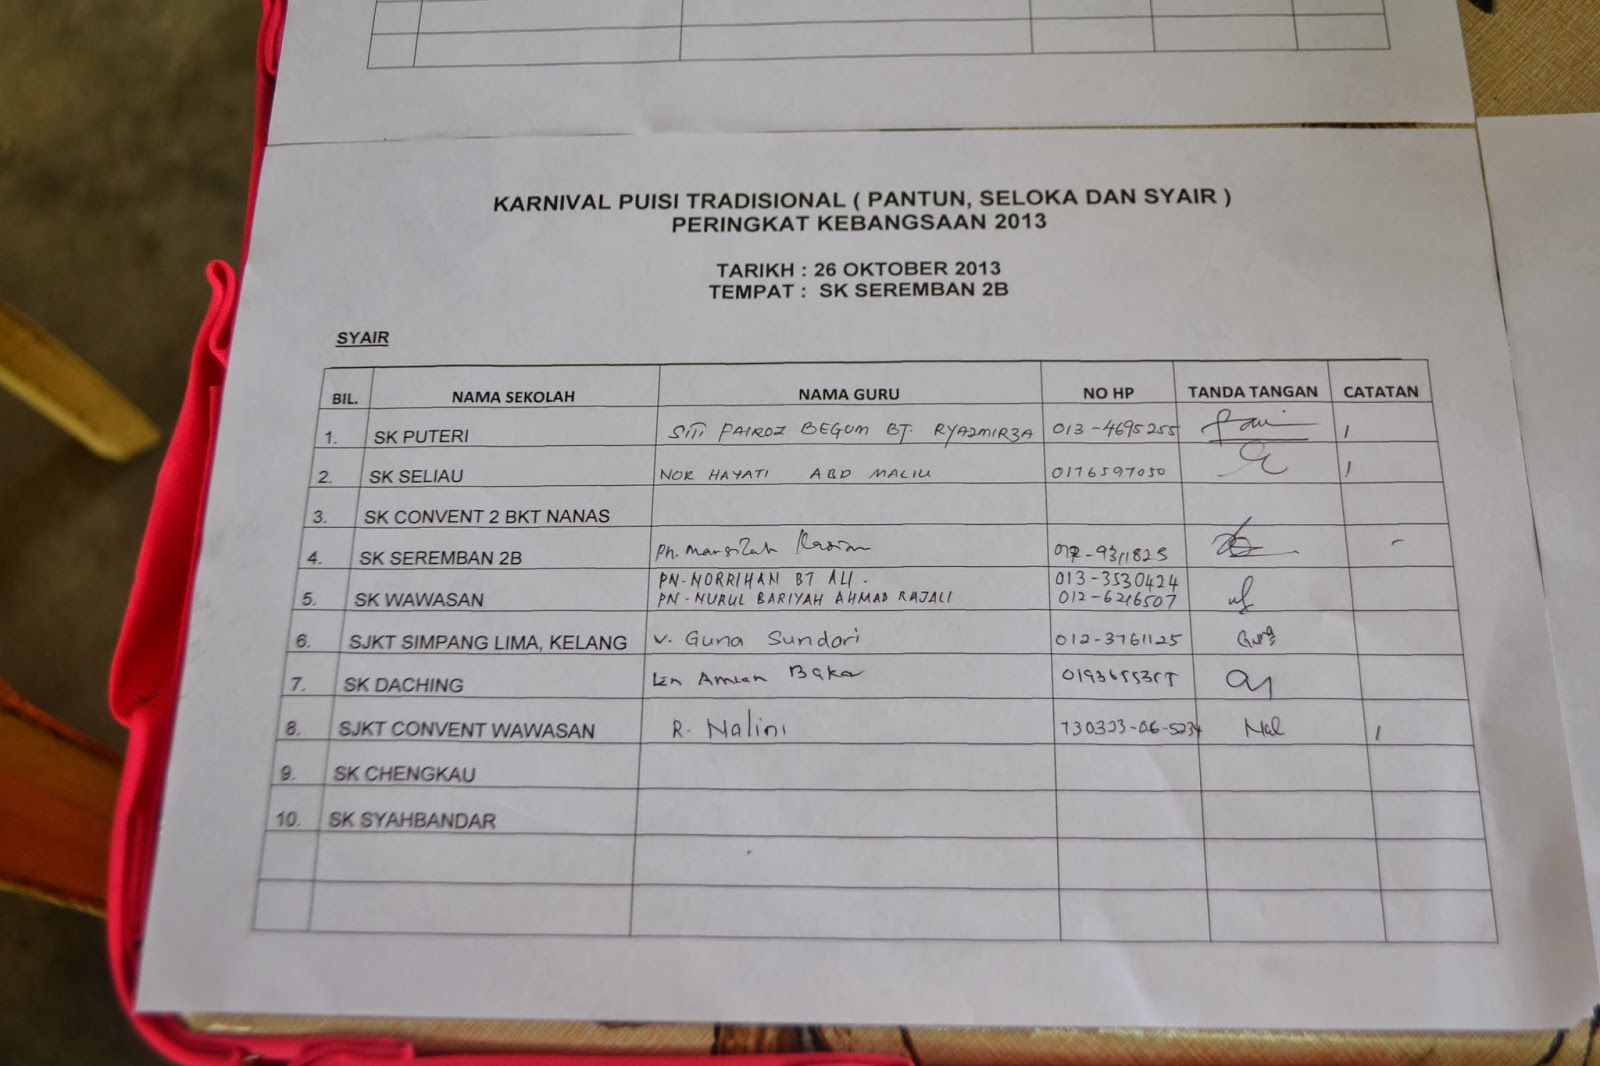 KARNIVAL PUISI TRADISIONAL ( PANTUN, SELOKA DAN SYAIR )
PERINGKAT KEBANGSAAN 2013
TARIKH : 26 OKTOBER 2013
TEMPAT : SK SEREMBAN 2B
SYAIR
BIL. NAMA SEKOLAH NAMA GURU NO HP TANDA TANGAN CATATAN
1. SK PUTERI SITI FAIROZ BEGUM BT. RYAZMIRZA 013-4695255 /
2. SK SELIAU NOR HAYATI ABD MALIK 0176597050 /
3. SK CONVENT 2 BKT NANAS
4. SK SEREMBAN 2B Pn. -
5. SK WAWASAN PN-NORRIHAN BT ALI. 013-3530424
PN-NURUL BARIYAH AHMAD RAJALI 012-6216507
6. SJKT SIMPANG LIMA, KELANG V. Guna Sundari 012-3761125 Guna
7. SK DACHING
8. SJKT CONVENT WAWASAN R. Nalini 730323-06-5234 Nal /
9. SK CHENGKAU
10. SK SYAHBANDAR